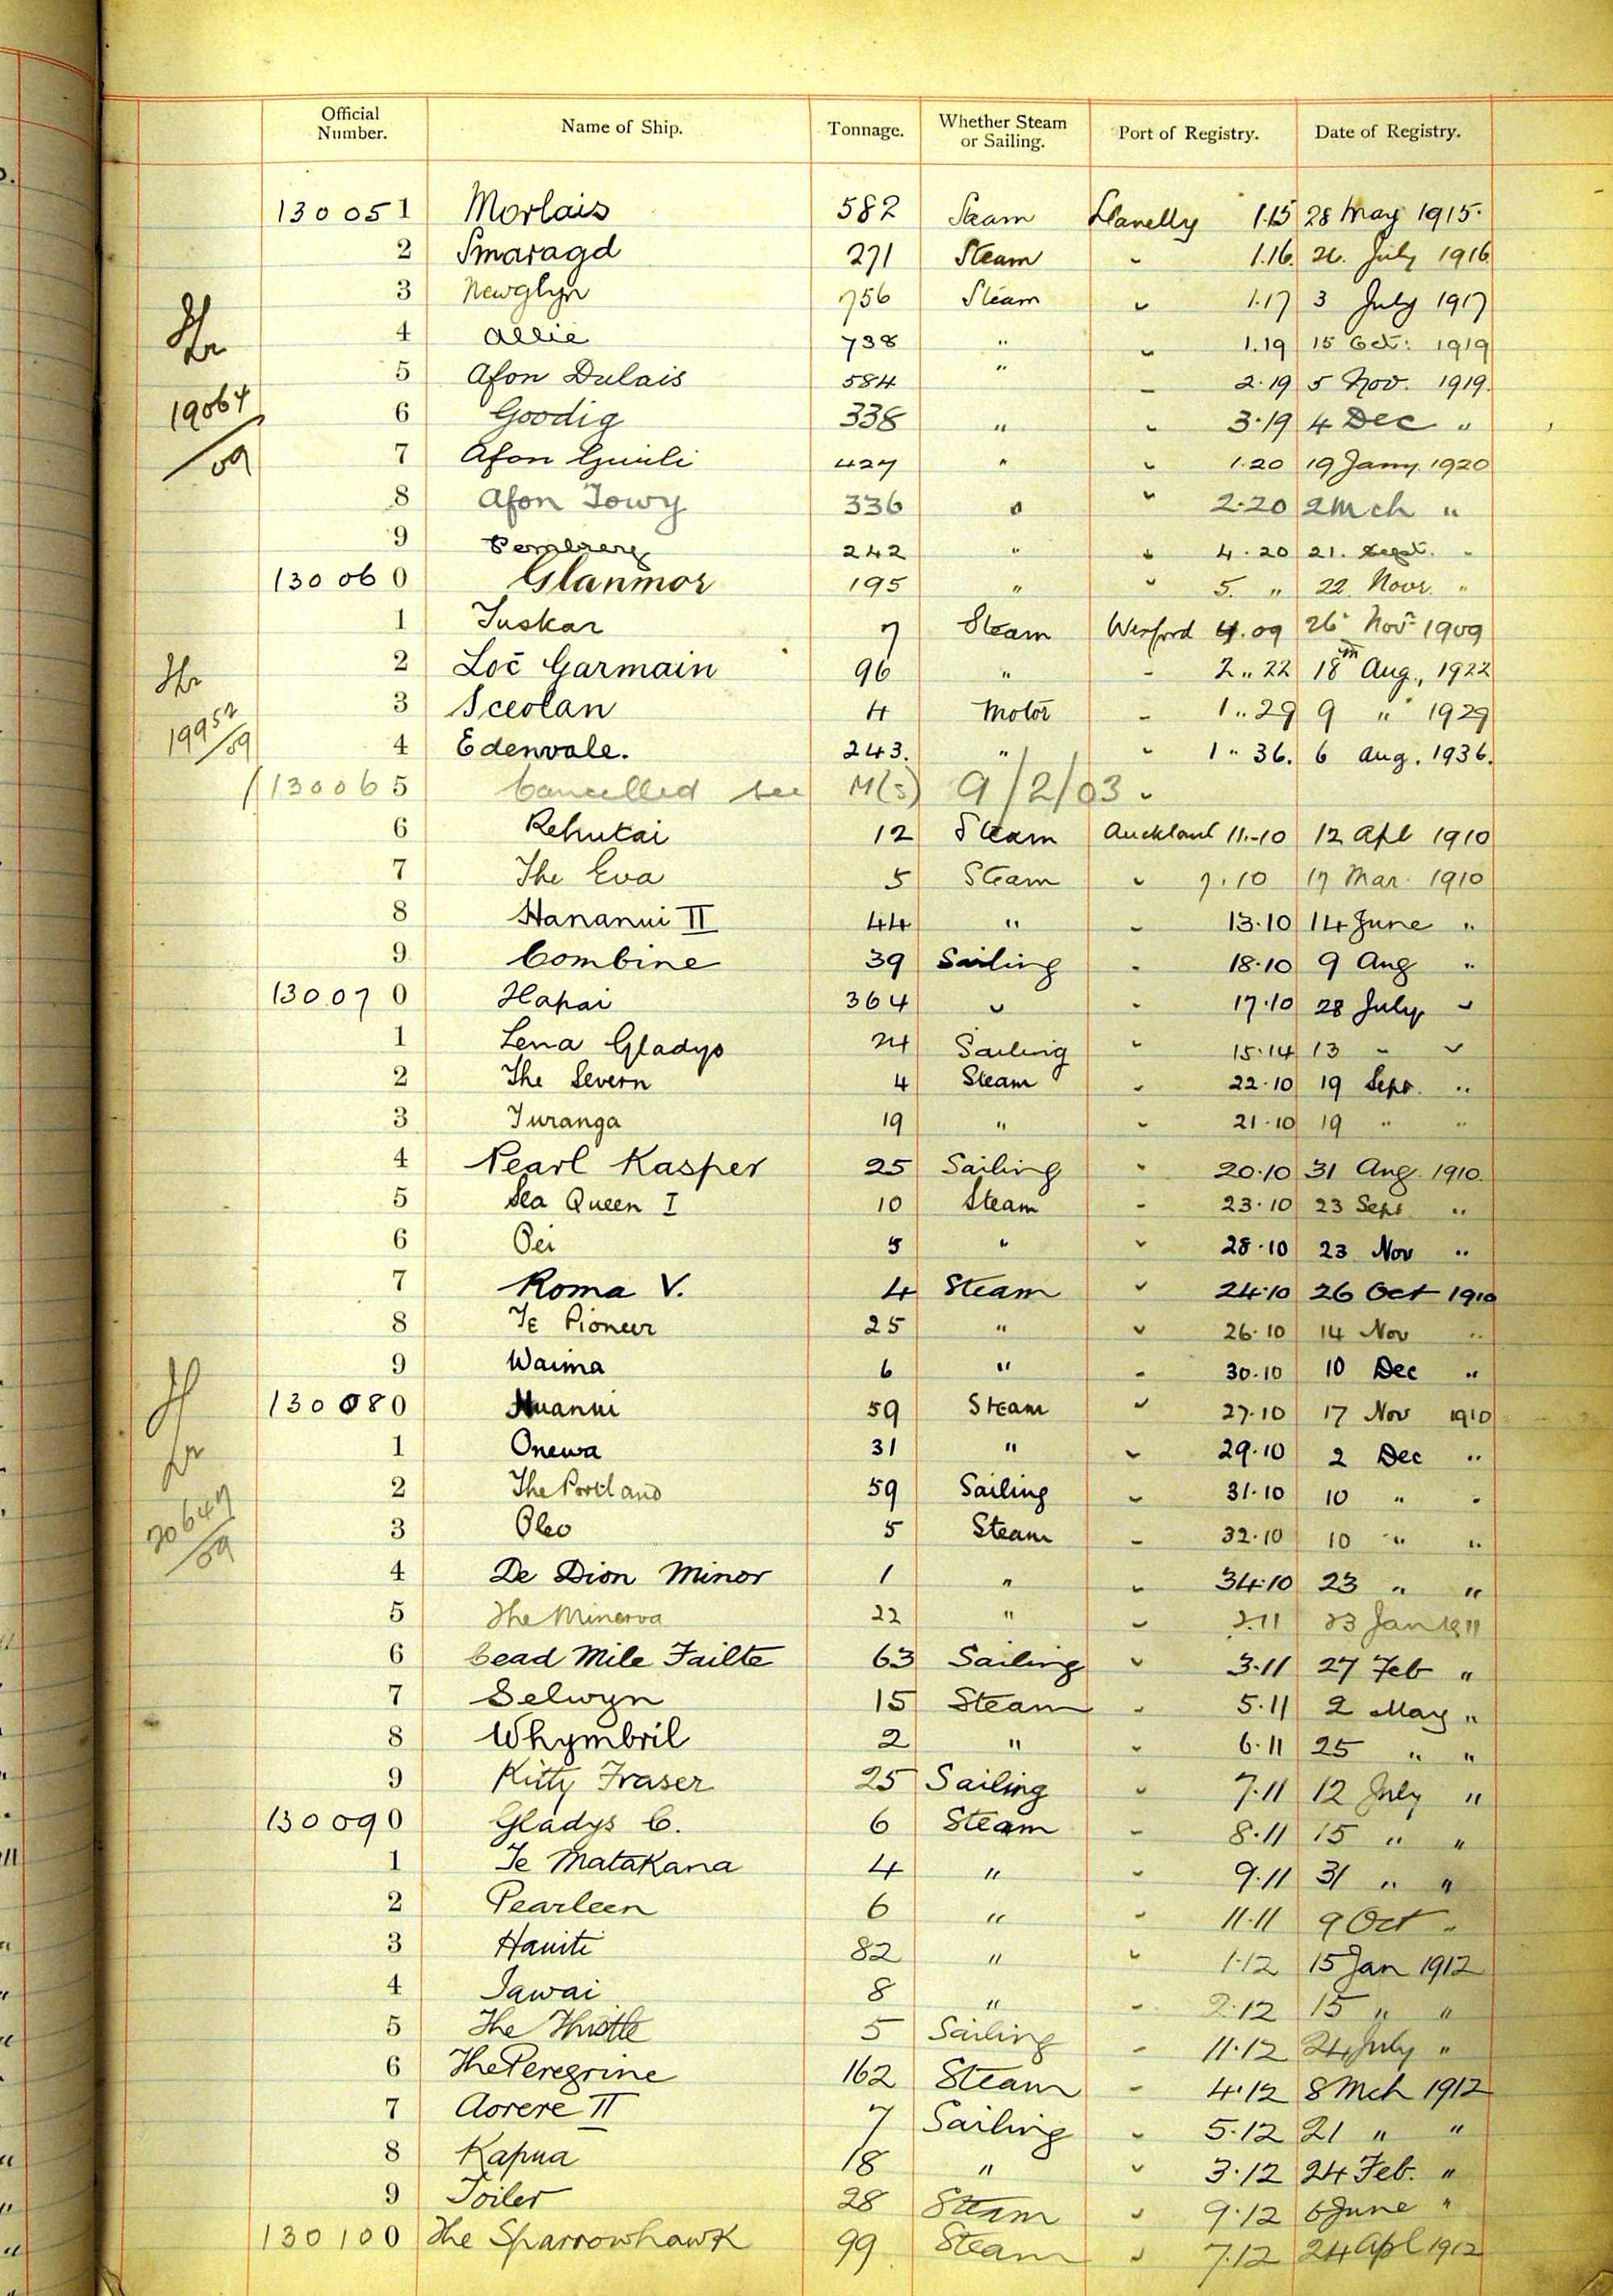 Official Number. Name of Ship. Tonnage. Whether Steam or Sailing. Port of Registry. Date of Registry.
130051 Morlais 582 Steam Llanelly 1.15 28 May 1915.
2 Smaragd 271 Steam " 1.16. 26. July 1916
3 Newglyn 756 Steam " 1.17 3 July 1917
4 Allie 738 " " 1.19 15 Oct: 1919
5 Afon Dulais 584 " " 2.19 5 Nov. 1919.
6 Goodig 338 " " 3.19 4 Dec "
19064/09
7 Afon Gwili 427 " " 1.20 19 Jany. 1920
8 Afon Towy 336 " " 2.20 2 Mch "
9 242 " " 4.20 21. Sept. "
130060 Glanmor 195 " " 5. " 22. Novr. "
1 Tuskar 7 Steam Wexford 4.09 26 Nov 1909
2 Loč Garmain 96 " " 2..22 18th Aug., 1922
3 Sceolan 4 Motor " 1..29 9 " 1929
19952/09
4 Edenvale. 243. " " 1.. 36. 6 Aug. 1936.
130065 Cancelled see M(s) 9/2/03
6 Rehutai 12 Steam Auckland 11.-10 12 Apl 1910
7 The Eva 5 Steam " 7.10 17 Mar. 1910
8 Hananui II 44 " " 13.10 14 June "
9 Combine 39 Sailing " 18.10 9 Aug "
130070 Hapai 364 " " 17.10 28 July "
1 Lena Gladys 24 Sailing " 15.14 13 " "
2 The Severn 4 Steam " 22.10 19 Sept. "
3 Turanga 19 " " 21.10 19 " "
4 Pearl Kasper 25 Sailing " 20.10 31 Aug. 1910.
5 Sea Queen I 10 Steam " 23.10 23 Sept "
6 Pei 5 " " 28.10 23 Nov "
7 Roma V. 4 Steam " 24.10 26 Oct 1910
8 Te Pioneer 25 " " 26.10 14 Nov "
9 Waima 6 " " 30.10 10 Dec "
130080 Nuanui 59 Steam " 27.10 17 Nov 1910
1 Onewa 31 " " 29.10 2 Dec "
2 The Portland 59 Sailing " 31.10 10 " "
20647/09
3 Oleo 5 Steam " 32.10 10 " "
4 De Dion Minor 1 " " 34.10 23 " "
5 The Minerva 22 " " 2.11 23 Jan 1911
6 Cead Mile Failte 63 Sailing " 3.11 27 Feb "
7 Selwyn 15 Steam " 5.11 2 May "
8 Whymbril 2 " " 6.11 25 " "
9 Kitty Fraser 25 Sailing " 7.11 12 July "
130090 Gladys C. 6 Steam " 8.11 15 " "
1 Te Matakana 4 " " 9.11 31 " "
2 Pearleen 6 " " 11.11 9 Oct "
3 Hauiti 82 " " 1.12 15 Jan 1912
4 Tawai 8 " " 2.12 15 " "
5 The Thistle 5 Sailing " 11.12 24 July "
6 The Peregrine 162 Steam " 4.12 8 Mch 1912
7 Aorere II 7 Sailing " 5.12 21 " "
8 Kapua 18 " " 3.12 24 Feb. "
9 Toiler 28 Steam " 9.12 6 June "
130100 The Sparrowhawk 99 Steam " 7.12 24 Apl 1912